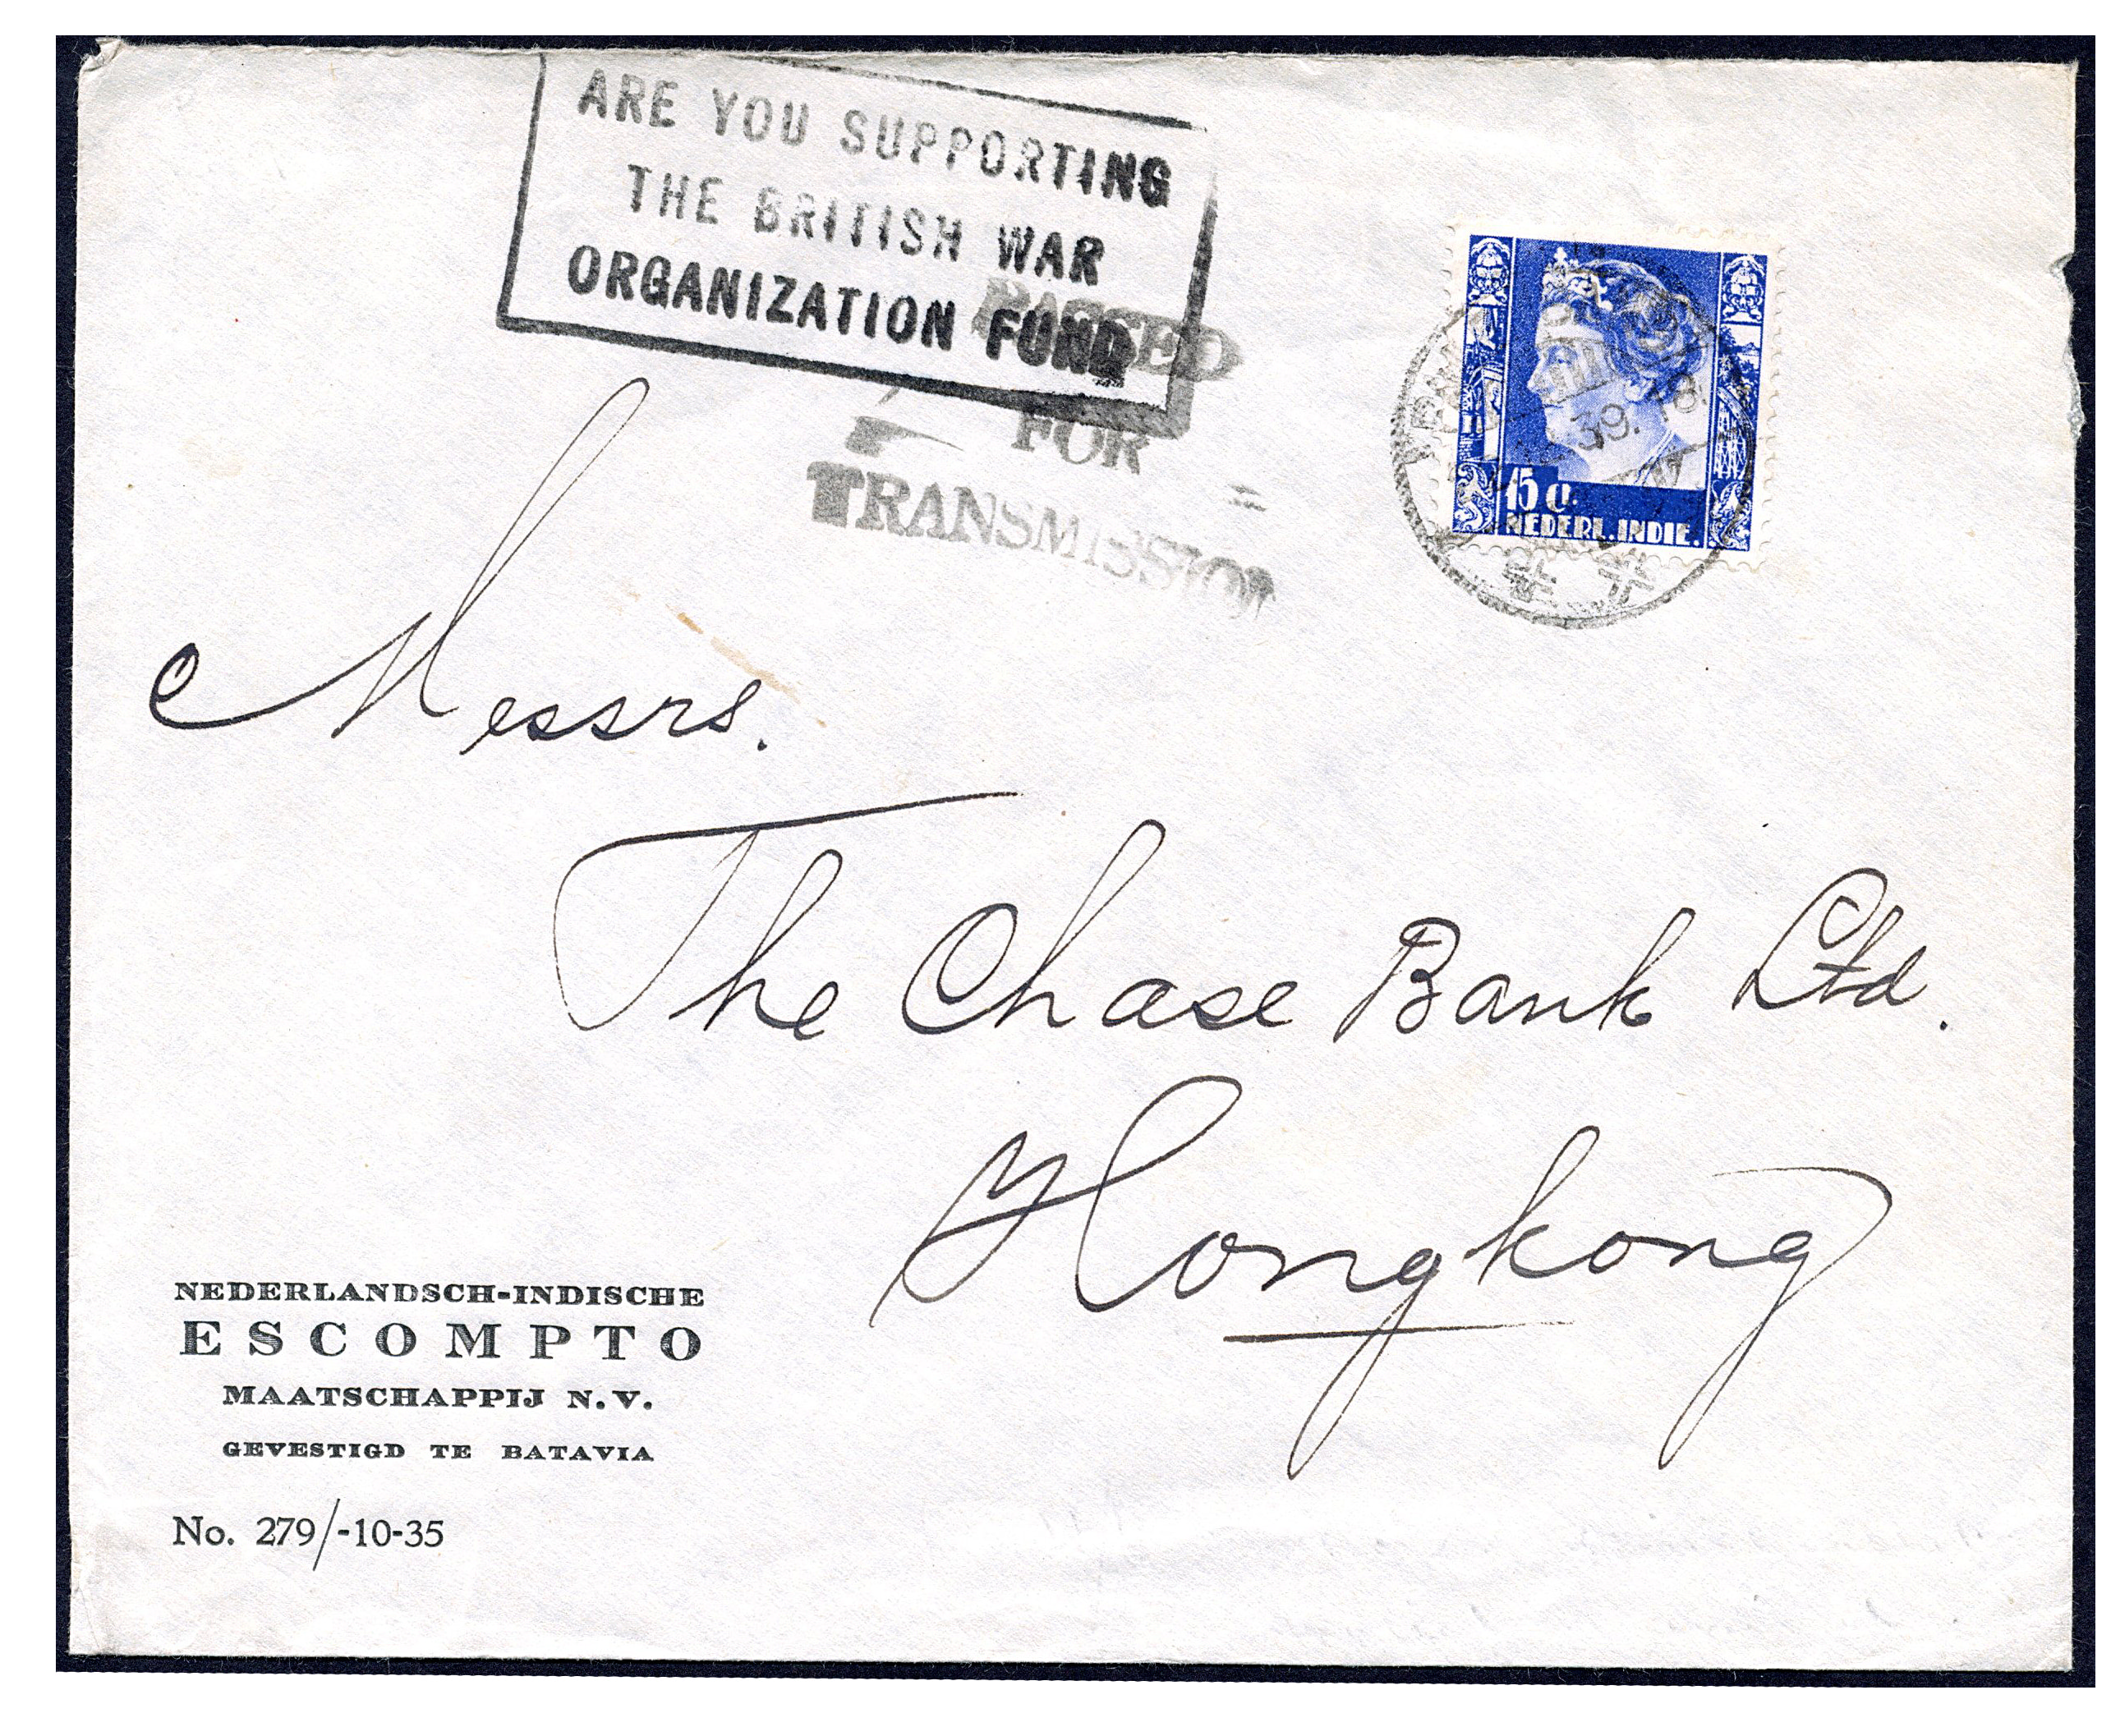 ARE YOU SUPPORTING
THE BRITISH WAR
ORGANIZATION FUND
PASSED
FOR
TRANSMISSION
39.18
15 c.
NEDERL.INDIE.
Messrs.
The Chase Bank Ltd.
Hongkong
NEDERLANDSCH-INDISCHE
ESCOMPTO
MAATSCHAPPIJ N.V.
GEVESTIGD TE BATAVIA
No. 279/-10-35